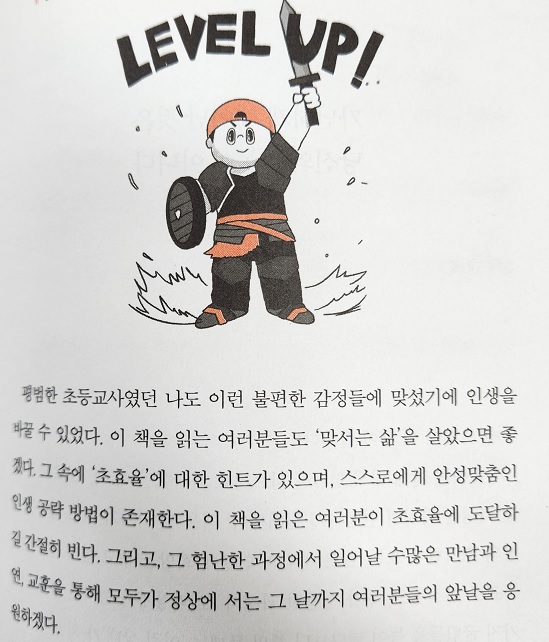 LEVEL UP!
평범한 초등교사였던 나도 이런 불편한 감정들에 맞섰기에 인생을
바꿀 수 있었다. 이 책을 읽는 여러분들도 ‘맞서는 삶’을 살았으면 좋
겠다. 그 속에 ‘초효율’에 대한 힌트가 있으며, 스스로에게 안성맞춤인
인생 공략 방법이 존재한다. 이 책을 읽은 여러분이 초효율에 도달하
길 간절히 빈다. 그리고, 그 험난한 과정에서 일어날 수많은 만남과 인
연, 교훈을 통해 모두가 정상에 서는 그 날까지 여러분들의 앞날을 응
원하겠다.